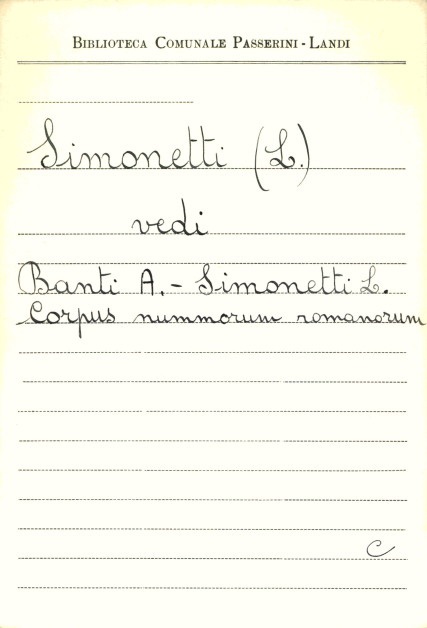 BIBLIOTECA COMUNALE PASSERINI - LANDI
Simonetti (L.)
vedi
Banti A. - Simonetti L.
Corpus nummorum romanorum
C